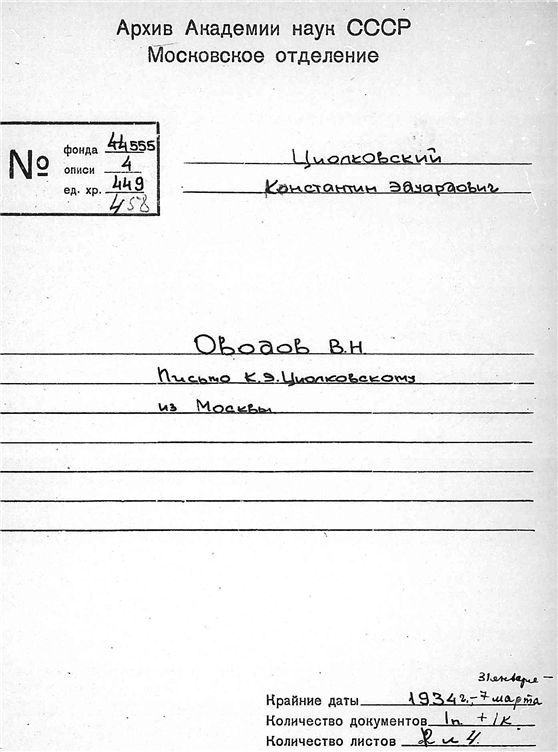 Архив Академии наук СССР
Московское отделение
№
фонда 555
описи 4
ед. хр. 449
458
Циолковский
Константин Эдуардович
Оводов В.Н.
Письмо К.Э.Циолковскому
из Москвы.
31 января –
Крайние даты 1934 г. – 7 марта
Количество документов 1п. + 1к.
Количество листов 4